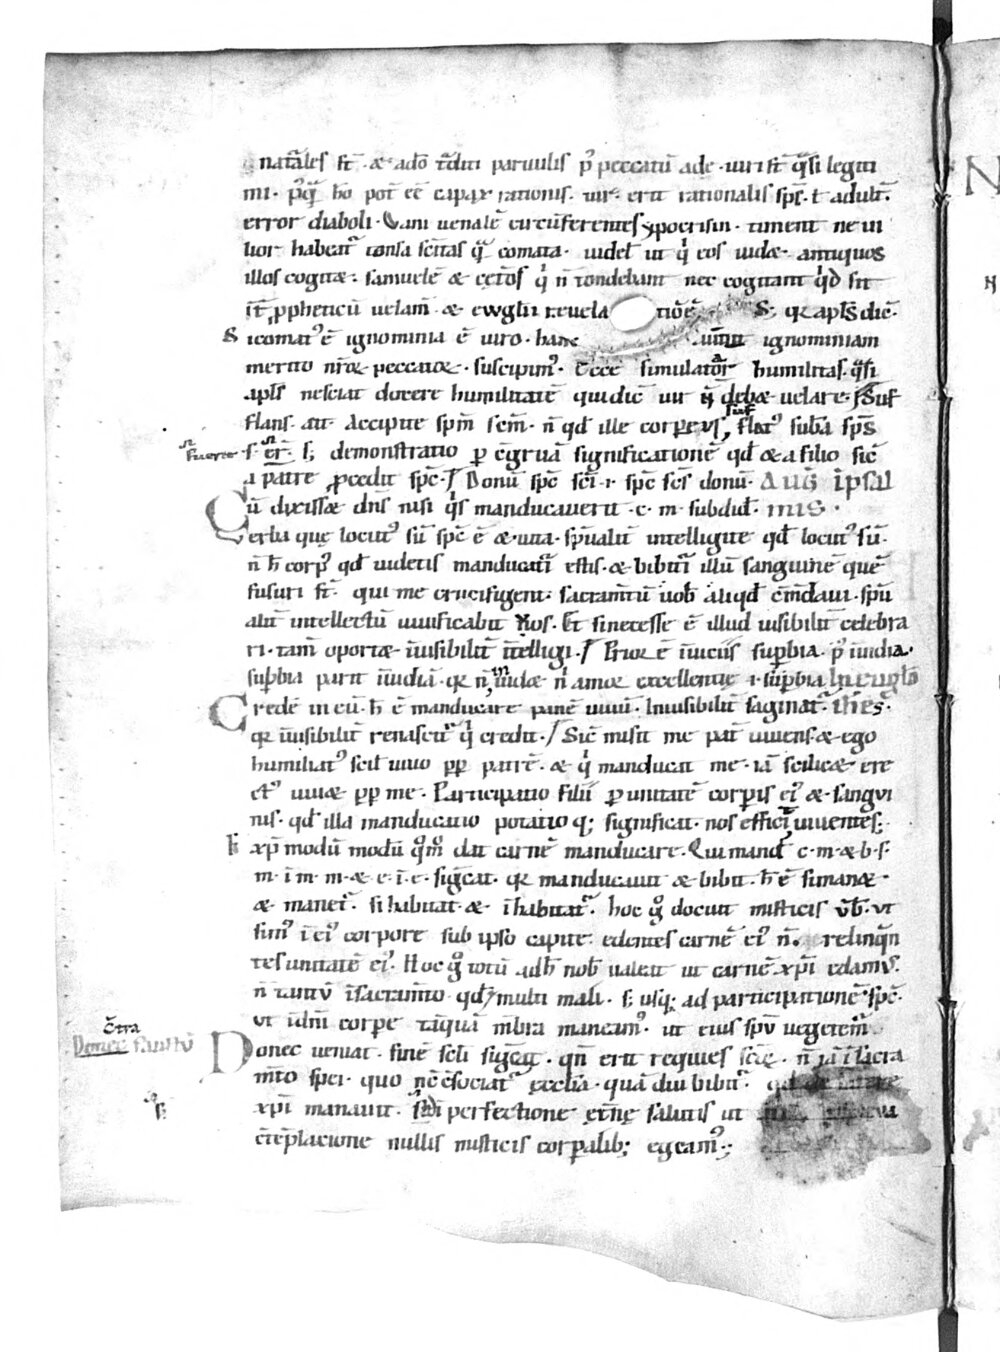 natales st̄ · & ado t̄diti paruulis p' peccatū ade · uiri st̄ q̄si legiti
mi · p'q̄ hō pot̄ ēē capax rationis · uir erit rationalis sps̄ · t adult̄
error diaboli · Vani uenalē circūferentes ypocrisin · timent ne ui
lior habeat' tonsa sc̄itas q̄ comata · uidel ut q' eos uidæ · antiquos
illos cogitæ · samuelē & cet̄os q' n̄ tondebant nec cogitant q'd sit
īt̄ ppheticū uelam̄ & ewglii reuela tiōē S; qr apl's dic̄ ·
Si comat' ē ignominia ē uiro · hanc ignominiam
merito nr̄æ peccatæ · suscipim' · Ecce simulator humilitas · q̄si
apl's nesciat docere humilitatē qui dic̄ uir n̄ debæ uelare · Suf
flans · ait · Accipite spm̄ scm̄ · n̄ qd ille corpeus, flat' subā sps̄
fuere
s; demonstratio p c̄gruā significationē qd & a filio sic̄
a patre pcedit spc̄ · Donū spc̄ sc̄i · i · spc̄ sc̄s donū · Auḡ ī psal
Cū dixissæ dn̄s nisi q's manducauerit · c · m · subdid̄ · mis ·
Verba que locut' sū spc̄ ē & uita · spualit̄ intelligite qd locut' sū ·
n̄ h̄ corp' qd uidetis manducatī estis · & bibitī illū sanguinē quē
fusuri st̄ · qui me crucifigent · sacram̄tū uob̄ aliqd c̄m̄daui · spū
alit̄ intellectū uiuificabit uos · Et si necesse ē illud uisibilit̄ celebra
ri · tam̄ oportæ īuisibilit̄ ītelligi · Prior ē īuidiis supbia · p' īuidia ·
supbia parit īuidiā · qr n̄ īuidæ n̄ amor excellentię · i · supbia In euglō
Credē in eū · h̄ ē manducare panē uiuū · Inuisibilit̄ saginat' · ioh̄es ·
qr īuisibilit̄ renascit' q' credit · Sic̄ misit me pat̄ uiuens · & ego
humiliat' scil uiuo pp patrē · & q' manducat me · iā scilicæ · ere
ct' uiuæ pp me · Participatio filii p unitatē corpis ei' & sangui
nis · qd illa manducatio potatio q; significat · nos effic uiuentes;
xp̄ modū modū q°m° dat carnē manducare · Qui mand̄ c · m · & b · s ·
m · ī m · m · & e · ī e · sig̃cat · qr manducauit & bibit · h̄ ē si manæ ·
& manet' · si habitat · & īhabitat' · hoc g° docuit misticis ūb̄ · ut
sim' ī ei' corpore sub ipso capite · edentes carnē ei' n̄ relinqn
tes unitatē ei' · Hoc g° totū ad h̄ nob̄ ualeat ut carnē xpī edam' ·
n̄ tantū ī sacram̄to · qd & multi mali · s · usq; ad participationē spc̄ ·
ut ī dn̄i corpe tāquā m̄bra maneam' · ut eius spū uegetem̄
c̄tra
Donec fautū
Donec ueniat · finē scl̄i sig̃cat · qn̄ erit requies sc̄ę · n̄ iā ī sacra
m̄to spei · quo nc̄ c̄sociat' ęcclīa · quā diu bibit' · qd de latere
xpī manauit · sed ī perfectione ęt̄nę salutis ut
c̄tēplacione nullis misticis corpalib; egeam';